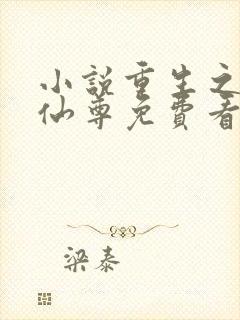 小説重生之
仙尊免費看
梁泰